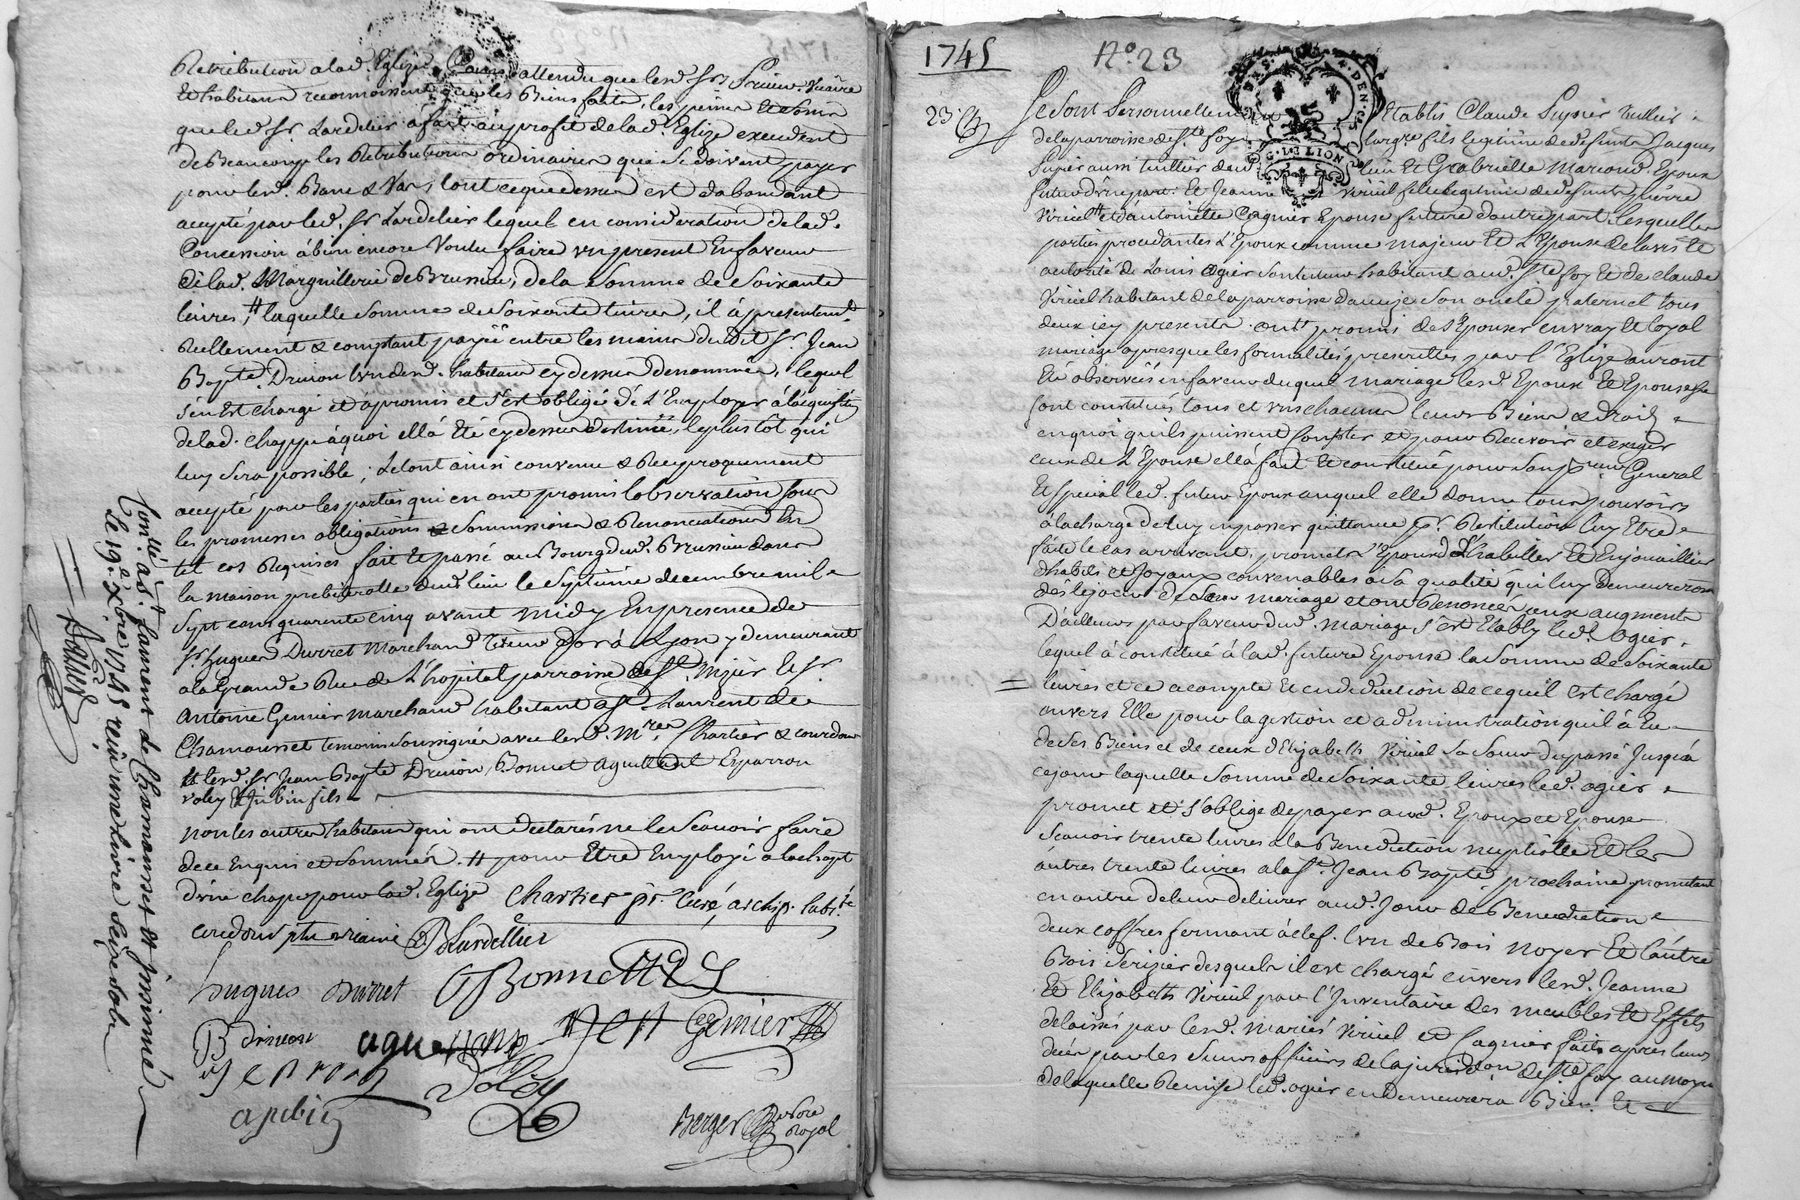 Retribution a lad. Eglise attendu que led. Sr Prieur Vicaire
Et habitans reconnoissent que les Biens faits, les peines Et soins
que led. Sr Lardelier a fait au profit de lad. Eglize excedent
de Beaucoup les Retributions ordinaires qui se doivent payer
pour led. Banc & Vas, tout ce que dessus est dabondant
accepté par led. Sr Lardelier lequel en consideration de lad.
Concession à bien encore Voulu faire un present En faveur
de lad. Marguillerie de Brussieu, de la somme de soixante
livres, laquelle somme de soixante livres, il à presentemt
Reellement & comptant payée entre les mains dudit Sr Jean
Bapte Drivon l'un desd. habitans cy dessus denommés, lequel
s'en Est chargé et a promis et s'est obligé de L'Employer à lacquisition
de lad. chappe à quoi ell'a Eté cy dessus destinée, le plus tôt qui
luy sera possible; Le tout ainsi convenu & Reciproquement
accepté par les parties qui en ont promis l'observation sous
les promesses obligations & soummissions & Renonciations En
tel cas Requises fait Et passé au Bourg dud. Brussieu dans
la maison presbiteralle dud. lieu le septième decembre mil
sept cens quarante cinq avant midy En presence de
Sr Hugues Durret Marchand à Lyon y demeurant
a la Grande Rue de L'hopital parroisse de St Nizier Et Sr
Antoine Genier marchand habitant a St Laurent de
Chamousset temoins soussignés avec led. Mres Chartier & couredour
Et led. Sr Jean Bapte Drivon, Bonnet aguillent Esparron
voley & Jubin fils
non les autres habitans qui ont declarés ne le scavoir faire
de ce Enquis et sommés. # pour Etre Employé a lachapt
d'une chape pour lad. Eglize Chartier pr. curé archip. labr.
couredour ptre vicaire Lardellier
hugues durret Bonnet
B drivon aguillent Genier
esparron Voley
a jubin Berger Notre Royal
Conllé à St Laurent de Chamousset et insinué
le 19e Xbre 1745 reçu une livre seize sols
1745 No 23
23. Se sont Personnellement Etablis Claude Supier tuillier
de la parroisse de Ste foy largre fils legitime de defunt Jacques
Supier aussi tuillier dud. lieu Et Gabrielle Marcoud. Epoux
futur d'une part. Et Jeanne Viricel fille legitime de defunts pierre
Viricel et d'antoinette Cognier Epouse future d'autre part. Lesquelles
parties procedantes L'Epoux comme majeur Et L'Epouse de l'avis Et
autorité de Louis ogier son tuteur habitant aud. Ste foy Et de claude
Viricel habitant de la parroisse daveize son oncle paternel tous
deux icy presents ont promis de s'Epouser en vray Et loyal
mariage apres que les formalités prescrittes par l'Eglize auront
Eté observées en faveur duquel mariage lesd. Epoux Et Epouse se
sont constitués tous et uns chacuns leurs Biens & Droits
en quoi qu'ils puissent consister et pour Recevoir et exiger
ceux de L'Epouse ell'a fait Et constitué pour son procureur General
Et special led. futur Epoux auquel elle donne tous pouvoirs
à la charge de luy en passer quittance pr. Restitution luy Etre
faite le cas arrivant, promet l'Epoux d'habiller Et Enjoailler
d'habits et Joyaux convenables à sa qualité qui luy demeureront
des le jour de leur mariage et ont Renoncés aux augments
D'ailleurs par faveur dud. mariage, s'est Etably led. ogier
lequel à constitué à lad. future Epouse la somme de soixante
livres et ce a compte Et en deduction de ce quil est chargé
envers Elle pour la gestion et administration qu'il a Eu
de ses Biens et de ceux d'Elizabeth Viricel sa sœur du passé Jusqu'a
ce jour laquelle somme de soixante livres led. ogier
promet et s'oblige de payer auxd. Epoux et Epouse
scavoir trente livres a la Benediction nuptiale Et les
autres trente livres a la St Jean Bapte prochaine promettant
en outre de leur delivrer aud. Jour de Benediction
deux coffres fermant à clef. l'un de Bois noyer Et l'autre
Bois serizier desquels il est chargé envers lesd. Jeanne
Et Elizabeth Viricel par l'Inventaire des meubles Et Effets
delaissés par lesd. mariés Viricel et Cognier faits apres leurs
décés par les sieurs officiers de la jurisdion de Ste foy au moyen
de laquelle Remise led. ogier en demeurera Bien Et
G. LE LION